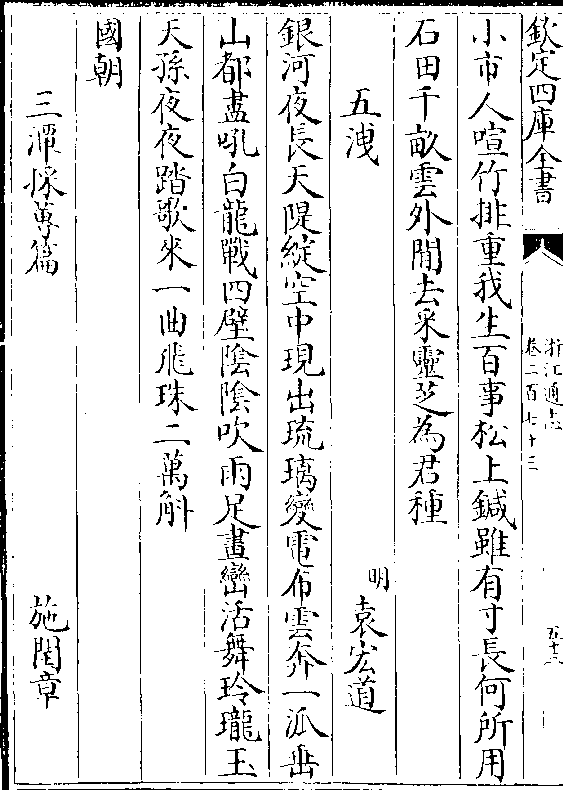 欽定四庫全書
浙江通志
卷二百七十三
小市人喧竹排重我生百事松上鍼雖有寸長何所用
石田千畝雲外閒去采靈芝為君種
五洩
明袁宏道
銀河夜長天隄綻空中現出琉璃變電布雲奔一派垂
山都盡吼白龍戰四壁陰陰吹雨足畫巒活舞玲瓏玉
天孫夜夜踏歌來一曲飛珠二萬斛
國朝
三潭採蓴篇
施閏章